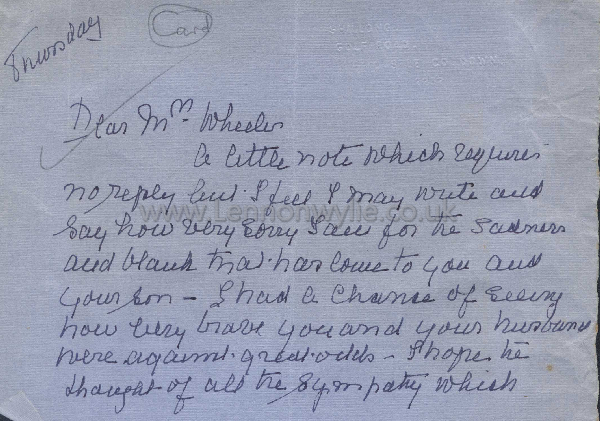 Card
Thursday
Dear Mrs Wheeler
A little note which requires
no reply but I feel I may write and
say how very sorry I am for the sadness
and blank that has come to you and
your son - I had a chance of seeing
how very brave you and your husband
were against great odds - I hope the
thought of all the sympathy which
www.Lennonwylie.co.uk